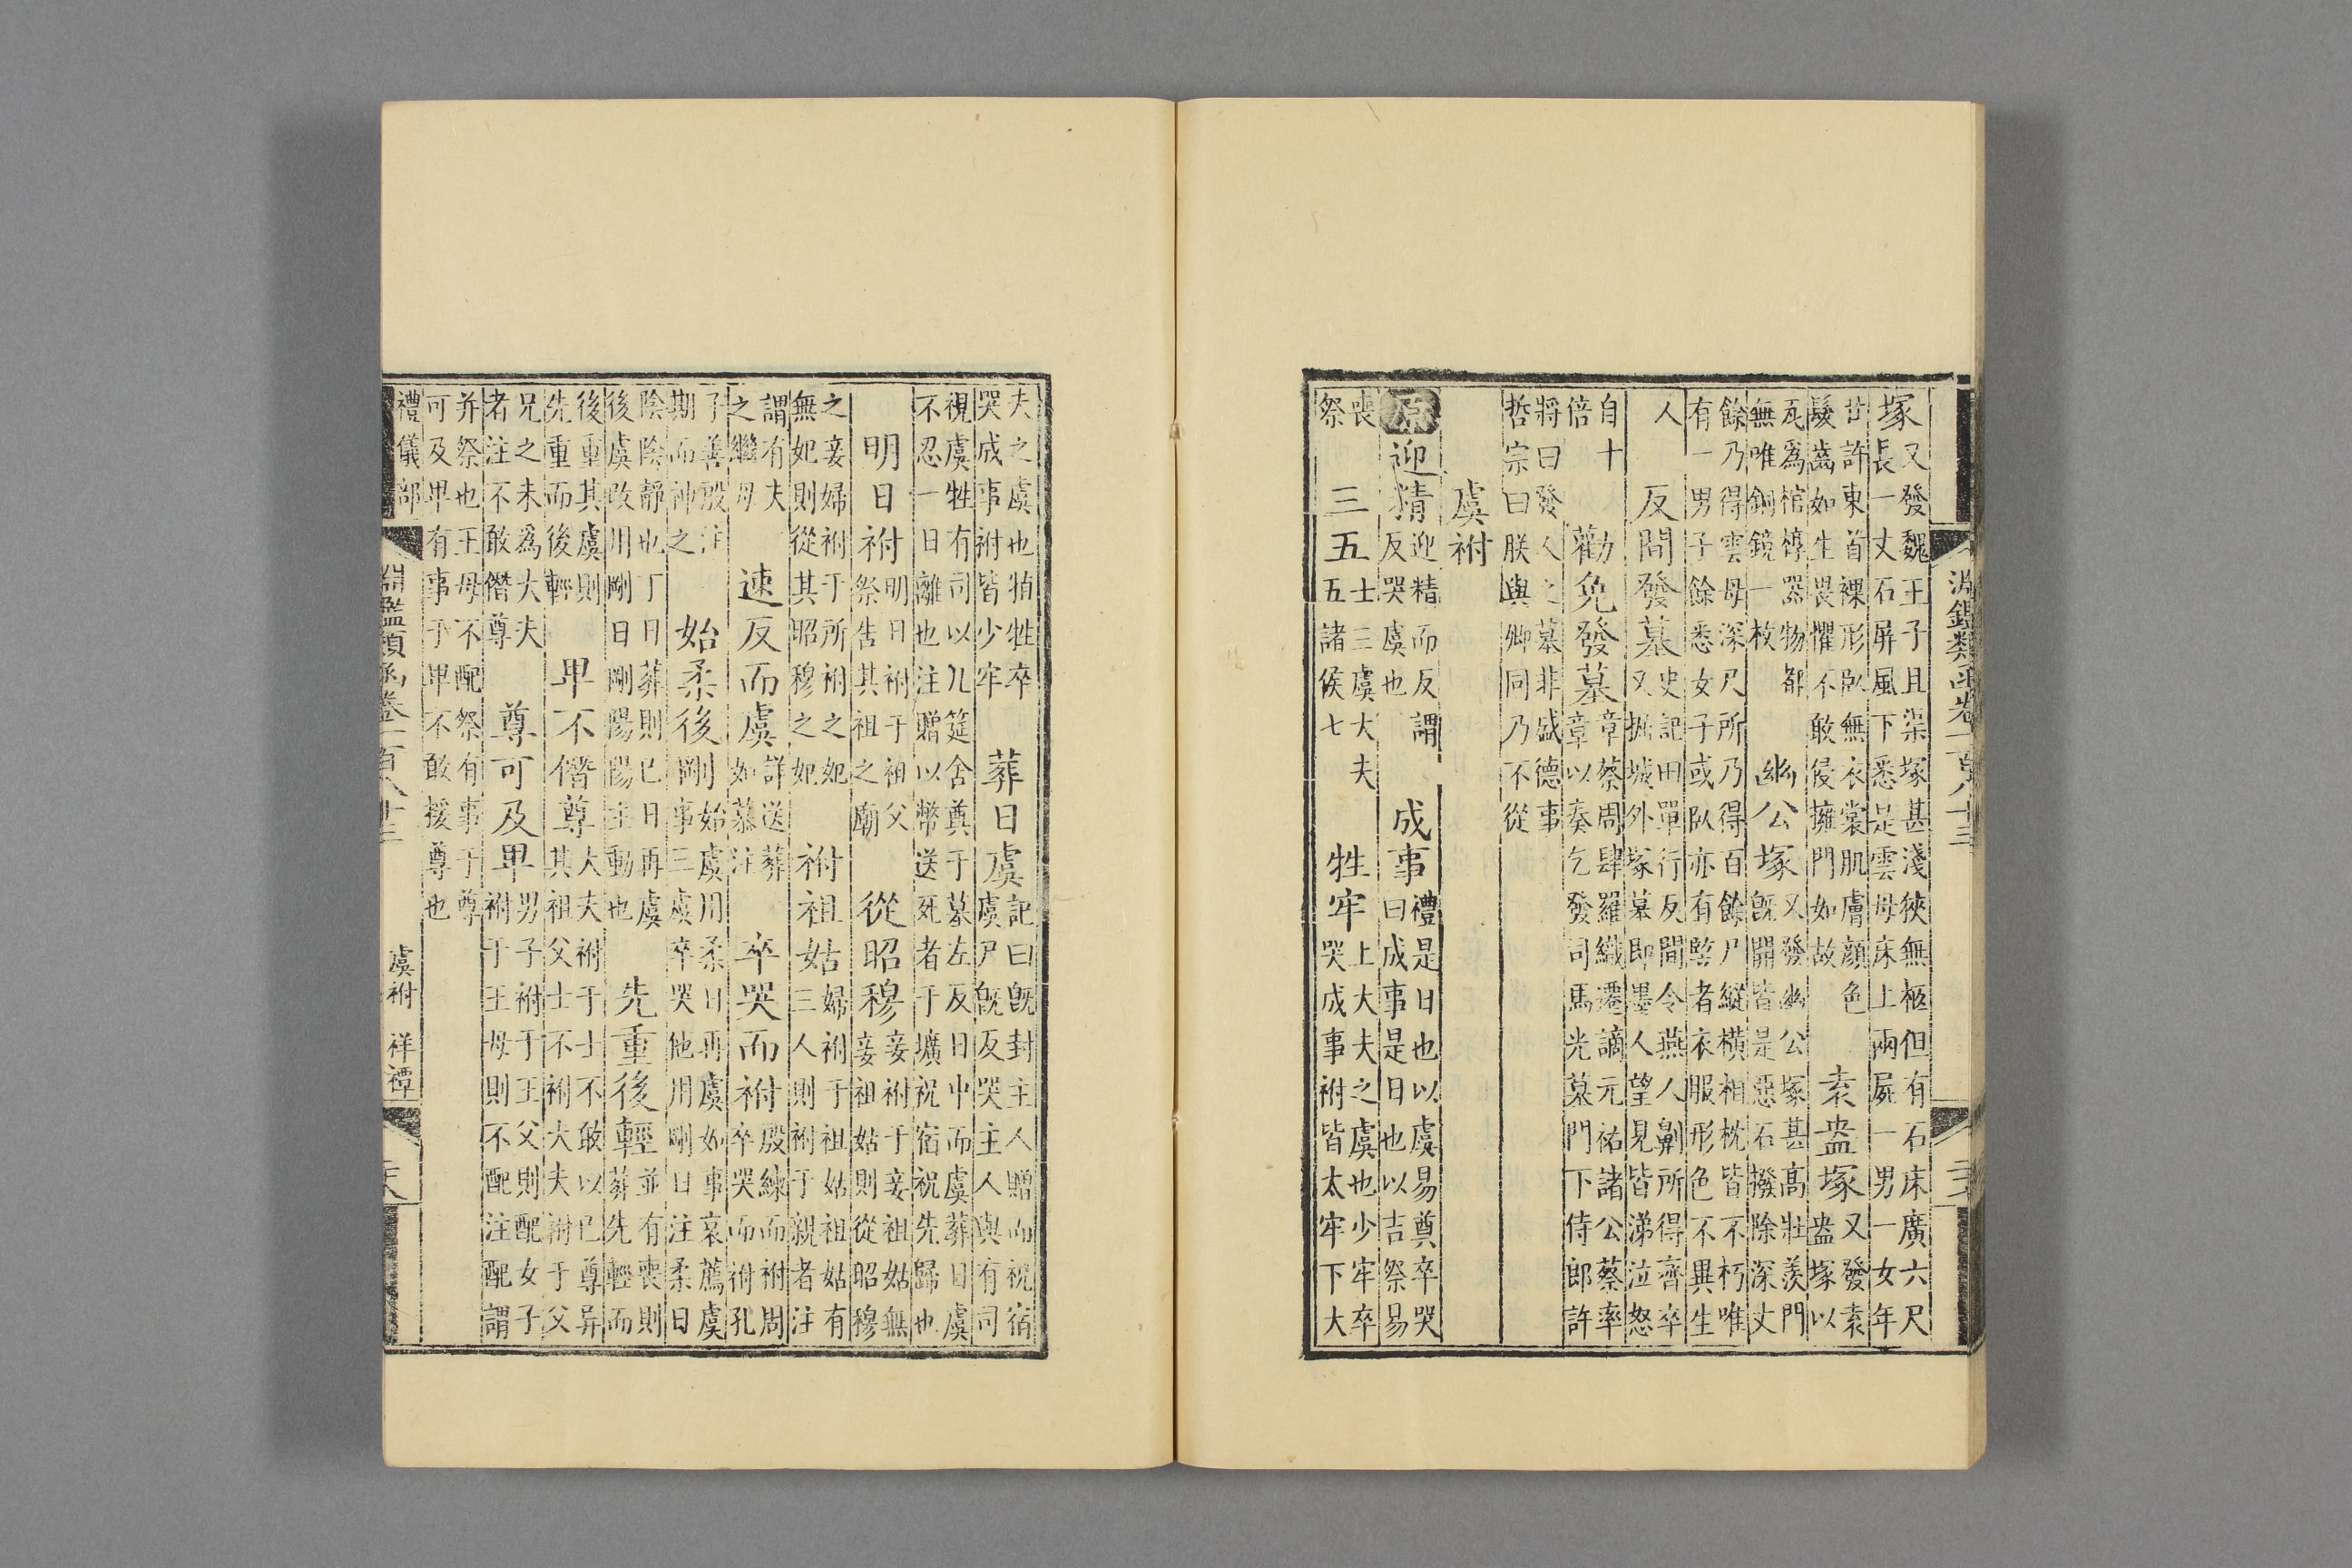 淵鑑類函卷一百八十三
塚又發魏王子且渠塚甚淺狹無柩但有石床廣六尺
長一丈石屏風下悉是雲母床上兩屍一男一女年
廿許東首裸形臥無衣裳肌膚顏色
髮齒如生畏懼不敢侵擁門如故
袁盎塚又發袁
盎塚以
瓦爲棺椁器物都
無唯銅鏡一枚
幽公塚又發幽公塚甚高壯羨門
旣開皆是惡石撥除深丈
餘乃得雲母深尺所乃得百餘尸縱橫相枕皆不朽唯
有一男子餘悉女子或臥亦有監者衣服形色不異生
人
反間發墓史記田單行反間令燕人劓所得齊卒
又掘城外塚墓即墨人望見皆涕泣怒
自十
倍
勸免發墓章蔡周肆羅織遷謫元祐諸公蔡率
章以奏乞發司馬光墓門下侍郎許
將曰發人之墓非盛德事
哲宗曰朕與卿同乃不從
虞祔
原
迎精迎精而反謂
反哭虞也
成事禮是日也以虞易奠卒哭
曰成事是日也以吉祭易
喪
祭
三五士三虞大夫
五諸侯七
牲牢上大夫之虞也少牢卒
哭成事祔皆太牢下大
夫之虞也犆牲卒
哭成事祔皆少牢
葬日虞記曰旣封主人贈而祝宿
虞尸旣反哭主人與有司
視虞牲有司以几筵舍奠于墓左反日中而虞葬日虞
不忍一日離也注贈以幣送死者于壙祝宿祝先歸也
明日祔明日祔于祖父
祭告其祖之廟
從昭穆妾祔于妾祖姑無
妾祖姑則從昭穆
之妾婦祔于所祔之妃
無妃則從其昭穆之妃
祔祖姑婦祔于祖姑祖姑有
三人則祔于親者注
謂有夫
之繼母
速反而虞詳送葬
如慕注
卒哭而祔殷練而祔周
卒哭而祔孔
子善殷注
期而神之
始柔後剛始虞用柔日再虞如事哀薦虞
事三虞卒哭他用剛日注柔日
陰陰靜也丁日葬則已日再虞
後虞改用剛日剛陽陽主動也
先重後輕並有喪則
葬先輕而
後重其虞則
先重而後輕
卑不僭尊大夫祔于士不敢以已尊异
其祖父士不祔大夫祔于父
兄之未爲大夫
者注不敢僭尊
尊可及卑男子祔于王父則配女子
祔于王母則不配注配謂
并祭也王母不配祭有事于尊
可及卑有事于卑不敢援尊也
禮儀部
淵鑑類函卷一百八十三
虞祔 祥禫